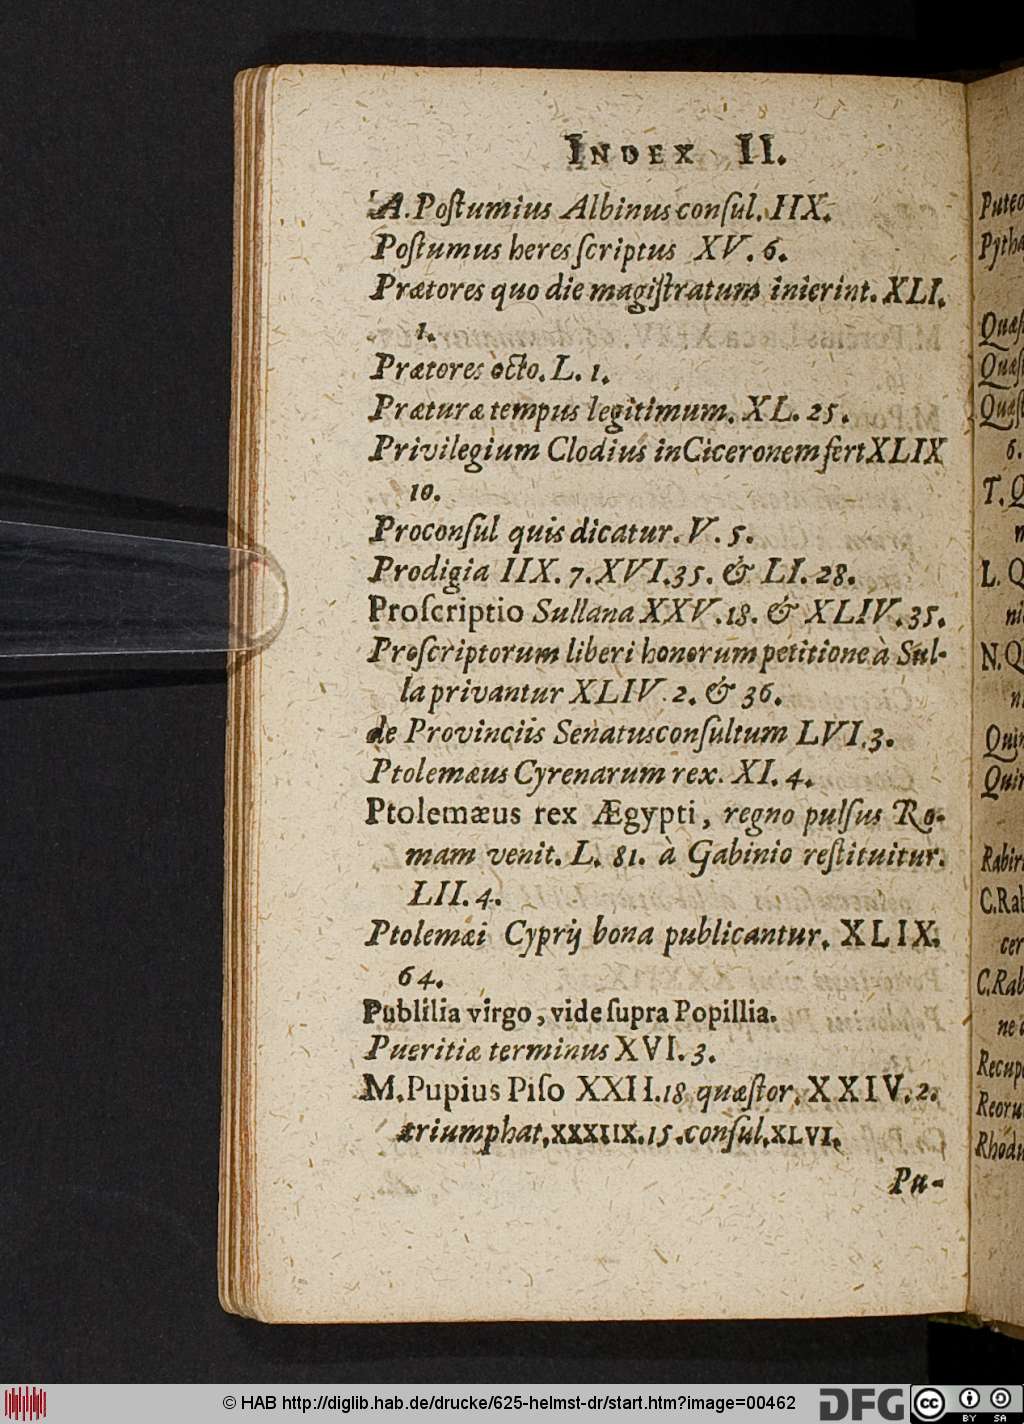 INDEX II.
A. Poſtumius Albinus conſul. IIX.
Poſtumus heres ſcriptus XV. 6.
Prætores quo die magiſtratum inierint. XLI.
1.
Prætores octo. L. 1.
Præturæ tempus legitimum. XL. 25.
Privilegium Clodius in Ciceronem fert XLIX
10.
Proconſul quis dicatur. V. 5.
Prodigia IIX. 7. XVI. 35. & LI. 28.
Proſcriptio Sullana XXV. 18. & XLIV. 35.
Proſcriptorum liberi honorum petitione à Sul-
la privantur XLIV. 2. & 36.
de Provinciis Senatusconſultum LVI. 3.
Ptolemæus Cyrenarum rex. XI. 4.
Ptolemæus rex Ægypti, regno pulſus Ro-
mam venit. L. 81. à Gabinio reſtituitur.
LII. 4.
Ptolemæi Cyprij bona publicantur. XLIX.
64.
Publilia virgo, vide ſupra Popillia.
Pueritiæ terminus XVI. 3.
M. Pupius Piſo XXII. 18 quæſtor. XXIV. 2.
triumphat. XXXIIX. 15. conſul. XLVI.
Pu-
Quæſ
Quæſt
Quæſt
6.
T. Q
L. Q
N. Q
Quin
Quin
Rabiri
C. Rab
cer
C. Rab
ne
Recup
Reoru
Rhod
© HAB http://diglib.hab.de/drucke/625-helmst-dr/start.htm?image=00462
DFG
cc
BY SA